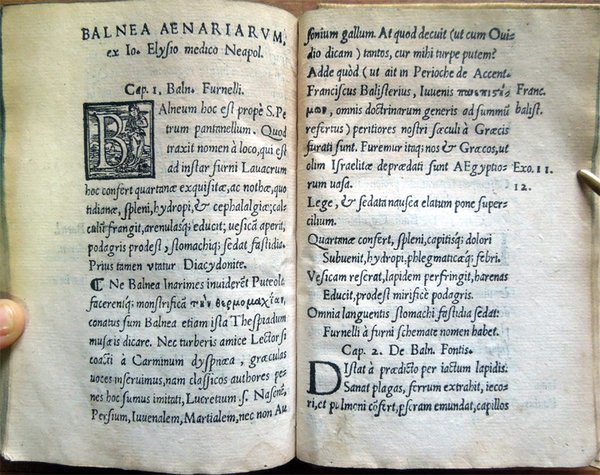 BALNEA AENARIARVM,
ex Io. Elysio medico Neapol.
Cap. 1. Baln. Furnelli.
BAlneum hoc est propè S. Pe
trum pantanellum. Quod
traxit nomen à loco, qui est
ad instar furni Lauacrum
hoc confert quartanæ exquisitæ, ac nothæ, quo
tidianæ, spleni, hydropi, & cephalalgiæ; cal-
culũ frangit, arenulasq; educit; uesicã aperit,
podagris prodest, stomachiq; sedat fastidia.
Prius tamen vtatur Diacydonite.
¶ Ne Balnea Inarimes inuiderẽt Puteolã
facerẽsq; monstrificã τὴν θερμομαχίαν,
conatus sum Balnea etiam ista Thespiadum
musæis dicare. Nec turberis amice Lector si
coacti à Carminum dyspnœa, græculas
uoces inseruimus, nam classicos authores pe-
nes hoc sumus imitati, Lucretium s. Nasonẽ,
Persium, Iuuenalem, Martialem, nec non Au
sonium gallum. At quod decuit (ut cum Oui
dio dicam) tantos, cur mihi turpe putem?
Adde quòd (ut ait in Perioche de Accent.
Franciscus Balisterius, Iuuenis Franc.
omnis doctrinarum generis ad summũ balist.
refertus) peritiores nostri sæculi à Græcis
furati sunt. Furemur itaq; nos & Græcos, ut
olim Israelitæ deprædati sunt AEgyptio- Exo. 11.
rum uasa. 12.
Lege, & sedata nausea elatum pone super-
cilium.
Quartanæ confert, spleni, capitisq; dolori
Subuenit, hydropi, phlegmaticæq; febri.
Vesicam reserat, lapidem perfringit, harenas
Educit, prodest mirificè podagris.
Omnia languentis stomachi fastidia sedat:
Furnelli à furni schemate nomen habet.
Cap. 2. De Baln. Fontis.
DIstat à prædicto per iactum lapidis.
Sanat plagas, ferrum extrahit, ieco-
ri, et pulmoni cõfert, psoram emundat, capillos